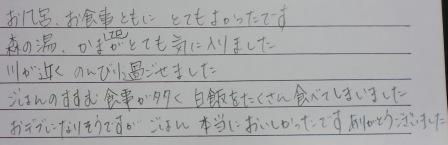 お風呂、お食事ともに とてもよかったです
森の湯、かまぶろがとても気に入りました
川が近く のんびり過ごせました
ごはんのすすむ食事が多く 白飯をたくさん食べてしまいました
おデブになりそうですが ごはん 本当においしかったです ありがとうございました